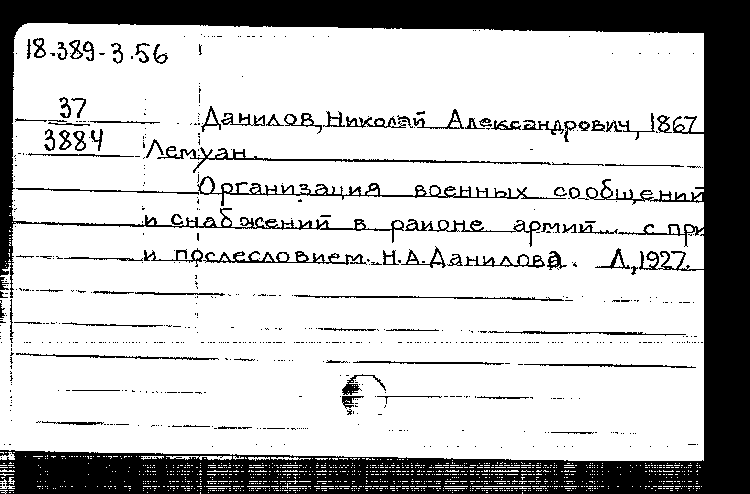 18.389-3.56
37
3884
Данилов, Николай Александрович, 1867
Лемуан.
Организация военных сообщений
и снабжений в районе армий... с при
и послесловием. Н.А.Данилова. Л., 1927.